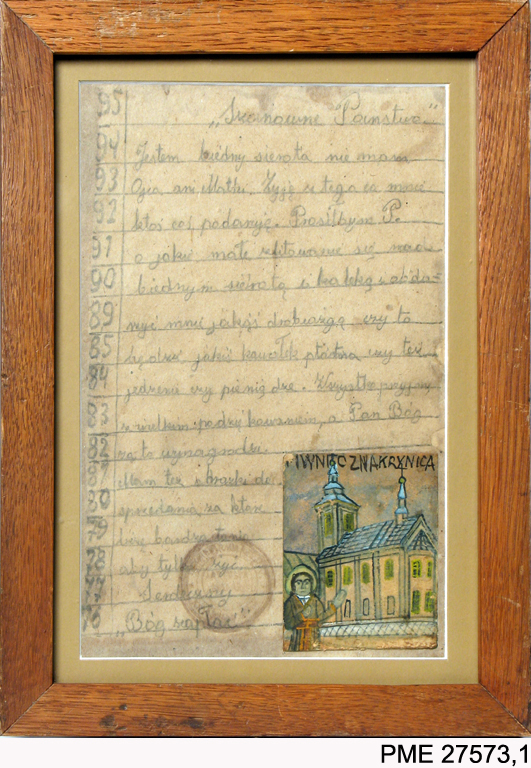 95
„Szanowne Państwo"
94 Jestem biedny sierota nie mam
93 Ojca ani Matki. Żyję z tego co mnie
92 ktoś coś podaruje. Prosiłbym P.
91 o jakieś małe zlitowanie się nad
90 biednym sierotą i kaleką i obda-
89 rzyć mnie jakąś drobiazgą czy to
85 będzie jakiś kawałek płótna czy też
84 jedzenie czy pieniądze. Wszystko przyjmę
83 z wielkim podziękowaniem, a Pan Bóg
82 za to wynagrodzi.
Mam też obrazki do
80 sprzedania, za które
79 biorę bardzo tanio
78 aby tylko żyć
77
76 „Bóg zapłać"
IWNIEC ZNAKRYNICA
PME 27573,1